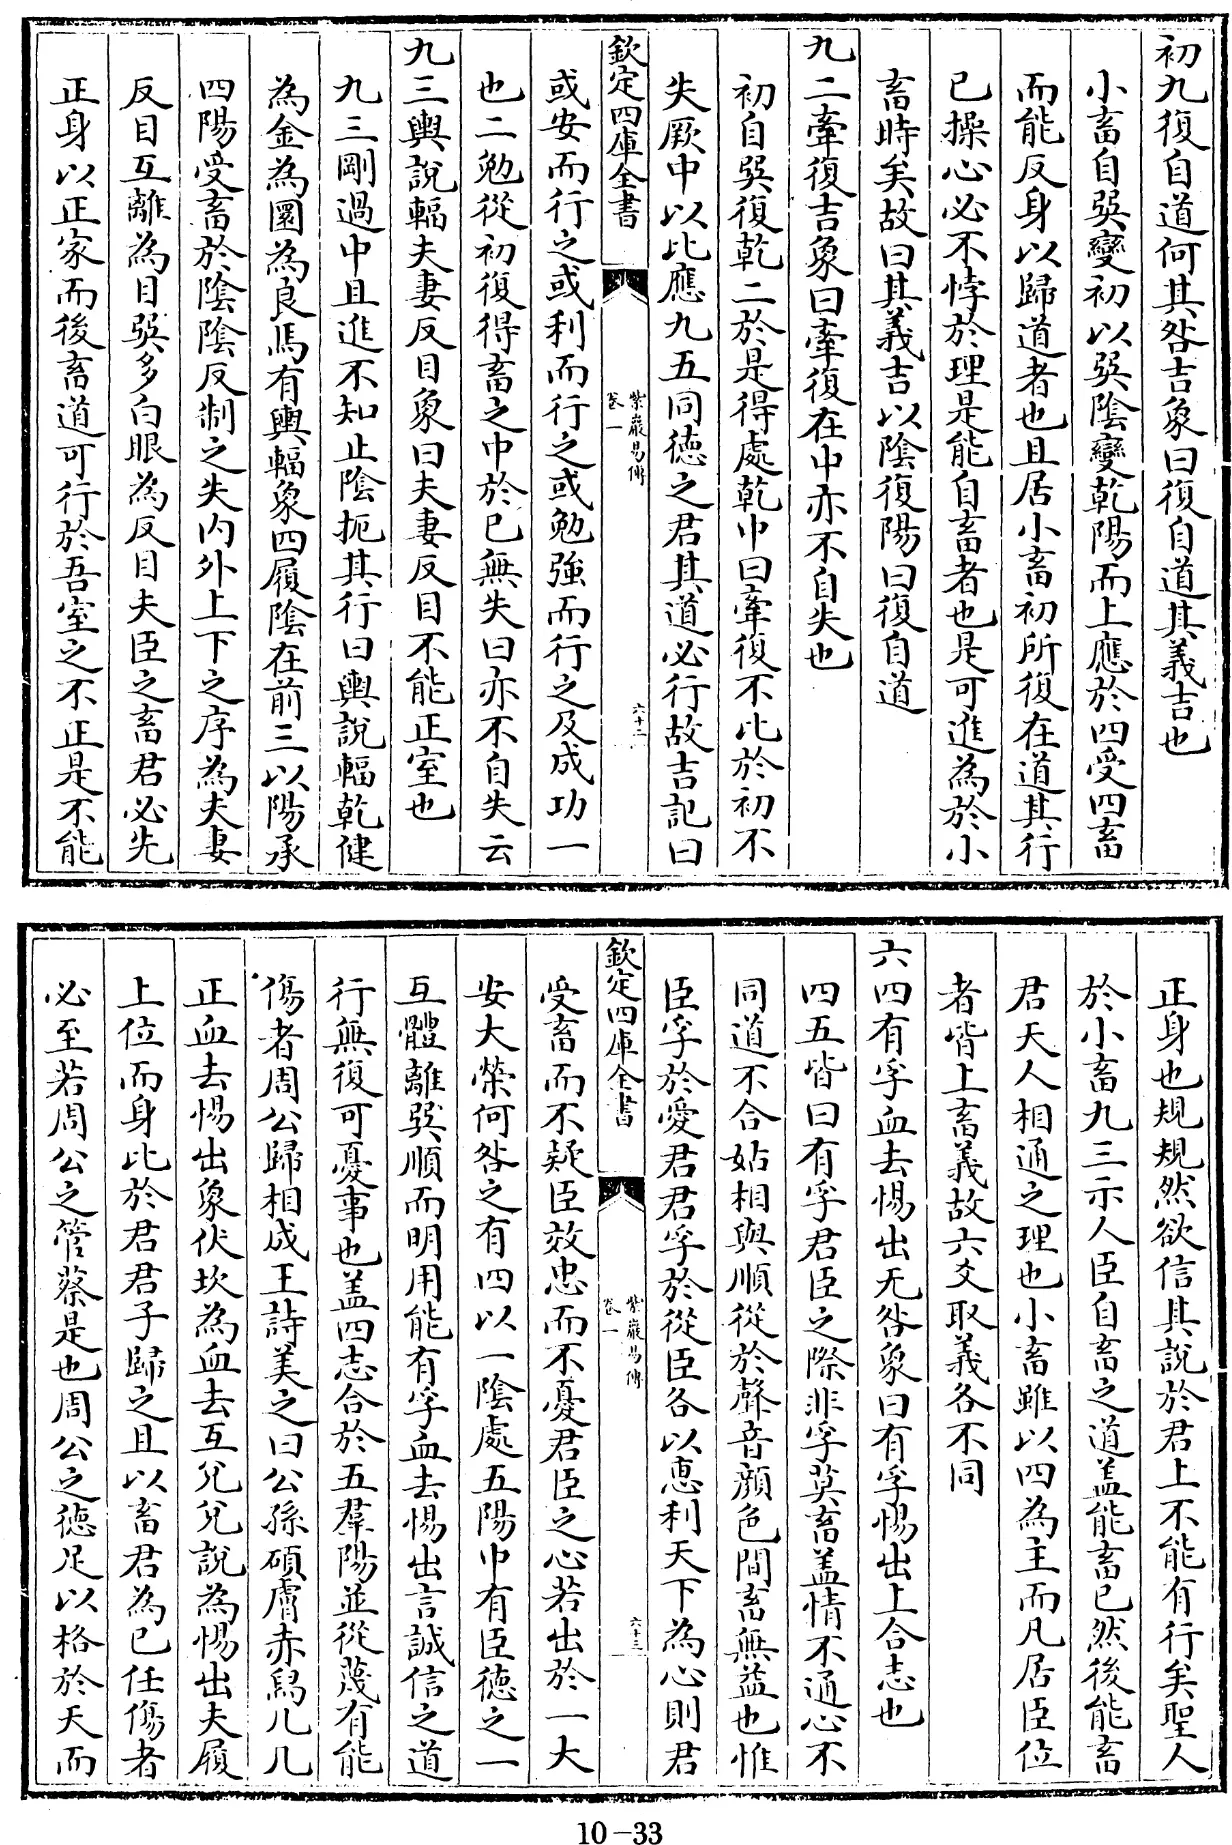 初九復自道何其咎吉象曰復自道其義吉也
小畜自巽變初以巽陰變乾陽而上應於四受四畜
而能反身以歸道者也且居小畜初所復在道其行
已操心必不悖於理是能自畜者也是可進為於小
畜時矣故曰其義吉以陰復陽曰復自道
九二牽復吉象曰牽復在中亦不自失也
初自巽復乾二於是得處乾中曰牽復不比於初不
失厥中以比應九五同徳之君其道必行故吉記曰
欽定四庫全書
紫巖易傳
卷一
六十二
或安而行之或利而行之或勉強而行之及成功一
也二勉從初復得畜之中於已無失曰亦不自失云
九三輿說輻夫妻反目象曰夫妻反目不能正室也
九三剛過中且進不知止陰扼其行曰輿說輻乾健
為金為圜為良馬有輿輻象四履陰在前三以陽承
四陽受畜於陰陰反制之失内外上下之序為夫妻
反目互離為目巽多白眼為反目夫臣之畜君必先
正身以正家而後畜道可行於吾室之不正是不能
正身也規規然欲信其說於君上不能有行矣聖人
於小畜九三示人臣自畜之道蓋能畜已然後能畜
君天人相通之理也小畜雖以四為主而凡居臣位
者皆上畜義故六爻取義各不同
六四有孚血去惕出无咎象曰有孚惕出上合志也
四五皆曰有孚君臣之際非孚莫畜蓋情不通心不
同道不合姑相與順從於聲音顔色間畜無益也惟
臣孚於愛君君孚於從臣各以惠利天下為心則君
欽定四庫全書
紫巖易傳
卷一
六十三
受畜而不疑臣效忠而不憂君臣之心若出於一大
安大榮何咎之有四以一陰處五陽中有臣徳之一
互體離巽順而明用能有孚血去惕出言誠信之道
行無復可憂事也蓋四志合於五羣陽並從蔑有能
傷者周公歸相成王詩美之曰公孫碩膚赤舄几几
正血去惕出象伏坎為血去互兌兌說為惕出夫履
上位而身比於君君子歸之且以畜君為已任傷者
必至若周公之管蔡是也周公之徳足以格於天而
10-33